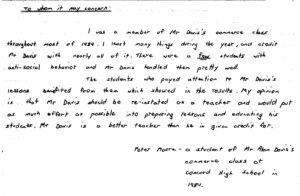 To whom it may concern:
I was a member of Mr Davis's commerce class
throughout most of 1984. I learnt many things during the year, and credit
Mr Davis with nearly all of it. There were a few students with
anti-social behavior and Mr Davis handled them pretty well.
The students who payed attention to Mr Davis's
lessons benefited from them which showed in the results. My opinion
is that Mr Davis should be re-instated as a teacher and would put
as much effort as possible into preparing lessons and educating his
students. Mr Davis is a better teacher than he is given credit for.
Peter Moore - a student of Mr Alan Davis's
commerce class at
Concord High School in
1984.